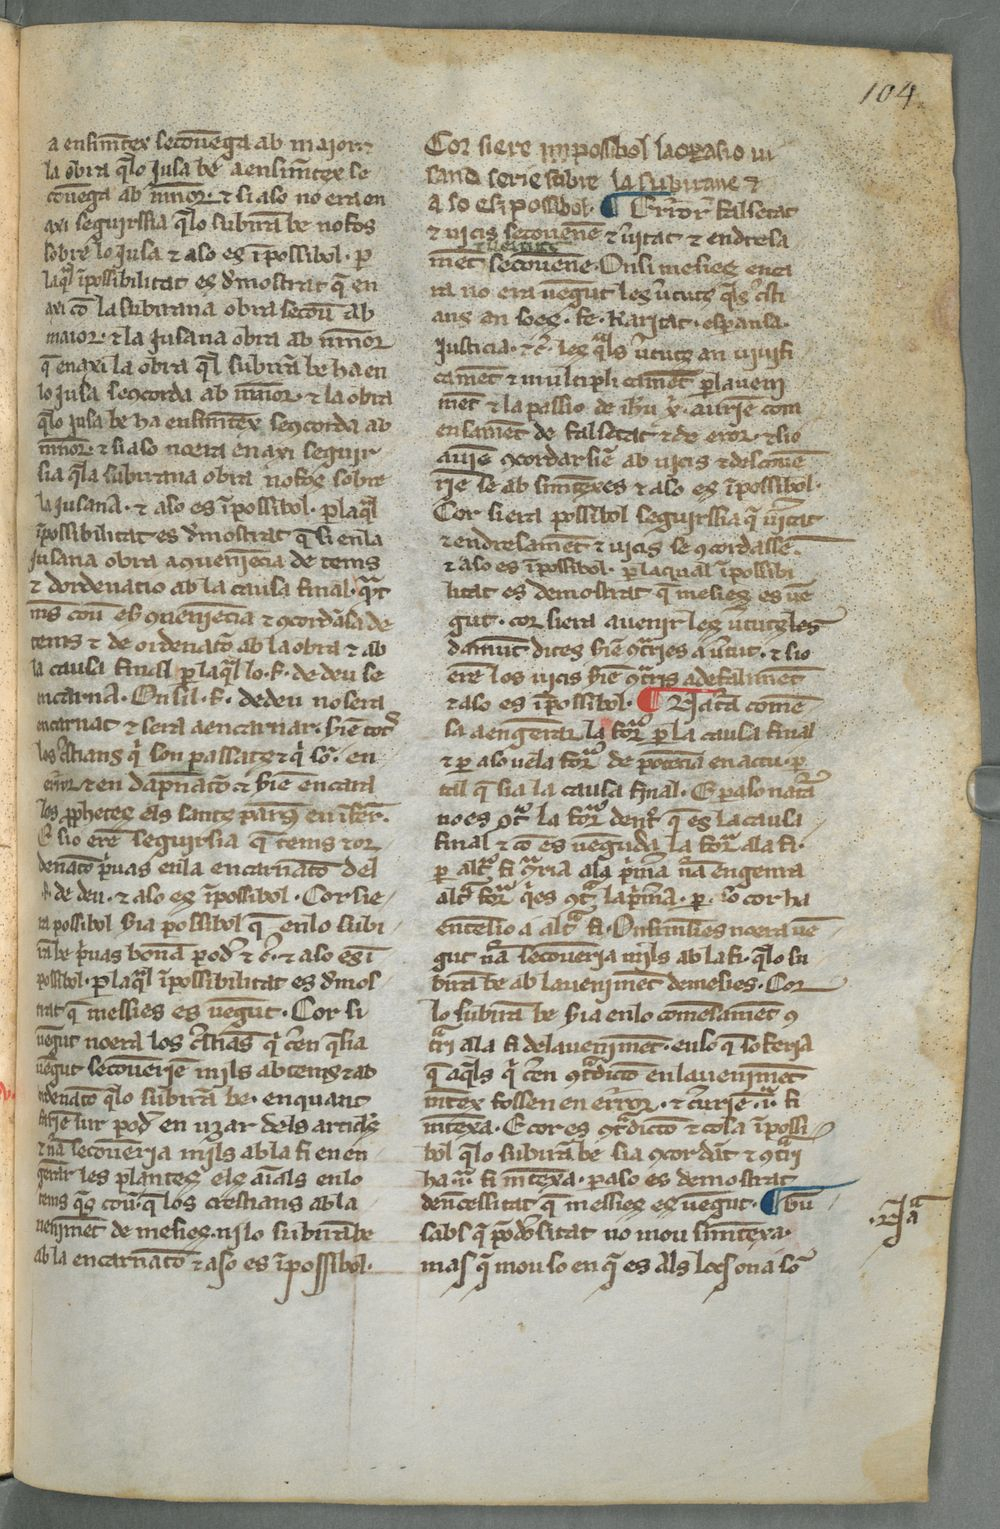 104
a ensimt̃ex secouẽga ab maiorit
la obra q̃lo Jusa bẽ aensimt̃ex se
couẽga ab mĩnor · ⁊ si aso no era en
axi seguirssia q̃lo subirã be no fos
sobre lo Jusa ⁊ aso es ĩpossibol · p̃
laq̃l ĩpossibilitat es d̃mostrat q̃ en
axi cõ la subirana obra secoũ ab
maior · ⁊ la Jusana obra ab mĩnor
q̃ enaxi la obra q̃l subirã be ha en
lo Jusa se9corda ab mĩnor · ⁊ la obra
q̃lo Jusa be ha ensimt̃ex se9corda ab
mĩnor · ⁊ si aso noera enaxi seguir
sia q̃la subirana obra nofos sobre
la Jusanã · ⁊ aso es ĩpossibol · p̃laq̃l
ĩpossibilitat es d̃mostrat q̃ si enla
Jusana obra a9ueniẽcia de tems
⁊ dordenatio ab la causa final · q̃t
ms couẽ es 9ueniẽcia ⁊ 9cordãsa de
tems ⁊ de ordenatõ ab la obra ⁊ ab
la causa final p̃laq̃l lo · f · de deu se
incarnã · On sil · f · dedeu no sera
encarnat ⁊ sera aencarnar · siẽ totz
los x̃stians q̃ son passats ⁊ q̃ sõ · en
error ⁊ en dapnatõ ⁊ siẽ encara
los ꝓphetes els sants pares en ifern ·
E sio erẽ seguirsia q̃ tems ⁊ or
denatõ p̃uas enla encarnatõ del
· f · de deu · ⁊ aso es ĩpossibol · Cor sie
ra possibol sia possibol q̃ enlo subi
rã be p̃uas bonã pod̃ ⁊ c̃ · ⁊ aso es ĩ
possibol · p̃laq̃l ĩpossibilitat es d̃mos
trat q̃ messies es uẽgut · Cor si
uẽgut noera los x̃stiãs q̃ cẽen q̃ sia
uẽgut secouẽriẽ mils abtems ⁊ ab
ordenatõ q̃lo subirã be · enquant
fariẽ lur pod̃ en uzar dels articles
⁊ nã secouẽria mils abla fi en en
genrar les plantes els aĩals enlo
tems q̃s couẽ · q̃ los crestians abla
uenimẽt de mesies · ni lo subirã be
ab la encarnatõ ⁊ aso es ĩpossibol ·
Cor siere impossibol la orasio ui
sand serie sobre la subirane ⁊
a so es ipossibol · ¶ Error falsetat
⁊ uicis secouẽne ⁊ ũitat ⁊ endresa
mẽt secouẽne · On si mesies enca
ra no era uẽgut les ũtuts q̃ls x̃sti
ans an soes · fe · karitat · esperansa ·
Justicia · ⁊ c̃ · les q̃ls ũtuts an uiuifi
camẽt ⁊ multiplicamẽt p̃laueni
mẽt ⁊ la passio de ihũ x̃ · auriẽ com
ensamẽt de falsetat ⁊ de error · ⁊ sio
auiẽ 9cordarsiẽ ab uicis ⁊ descouẽ
riẽ se ab simt̃exes ⁊ aso es ĩpossibol ·
Cor siera possibol seguirssia q̃ ũitat
⁊ endresamẽt ⁊ uicis se 9cordassẽ ·
⁊ aso es ĩpossibol · p̃laqual ĩpossibi
litat es demostrat q̃ mesies es uẽ
gut · cor siera auenir les ũtuts les
damũt dites siẽ 9t̃ries a ũtut · ⁊ sio
erẽ los uicis siẽ 9t̃ris adefalimẽt
⁊ aso es ĩpossibol · ¶ Natã comẽ
sa aengenrar la forã p̃la causa final
⁊ p̃ aso uela forã de potẽcia en actu · p̃
tal q̃ sia la causa final · E p̃aso natã
no es 9t̃ la forã denf̃ q̃ es la causa
final ⁊ cõ es uẽguda la forã ala fi ·
p̃ alt̃ fi 9t̃ria ala p̃mã nã engenra
alt̃ forã q̃es 9t̃ lap̃mã · p̃ so cor ha
entẽsio a alt̃ fi · On si messies noera uẽ
gut nã secouẽria mils ab la fi · q̃lo su
birã be ab lauenimẽt demesies · Cor
lo subirã be sia enlo comẽsamẽt 9
t̃ri ala fi delauenimẽt · enso q̃ soferia
q̃ aq̃ls q̃ cẽen 9t̃dicto enlauenimẽt
mt̃ex fossen en error · ⁊ cẽuriẽ · ũ · fi
mt̃exa · E cor es 9t̃dictõ ⁊ cosa ĩpossi
bol q̃lo subirã be sia 9cordãt ⁊ 9t̃ri
ha · ũ · fi mt̃exa · p̃aso es demostrat
denẽcessitat q̃ messies es uẽgut · ¶ Bẽ
sabs q̃ ꝓd̃sitat no mou simt̃exa ·
mas q̃ mou so en q̃ es als locs on a sõ
· Rñã